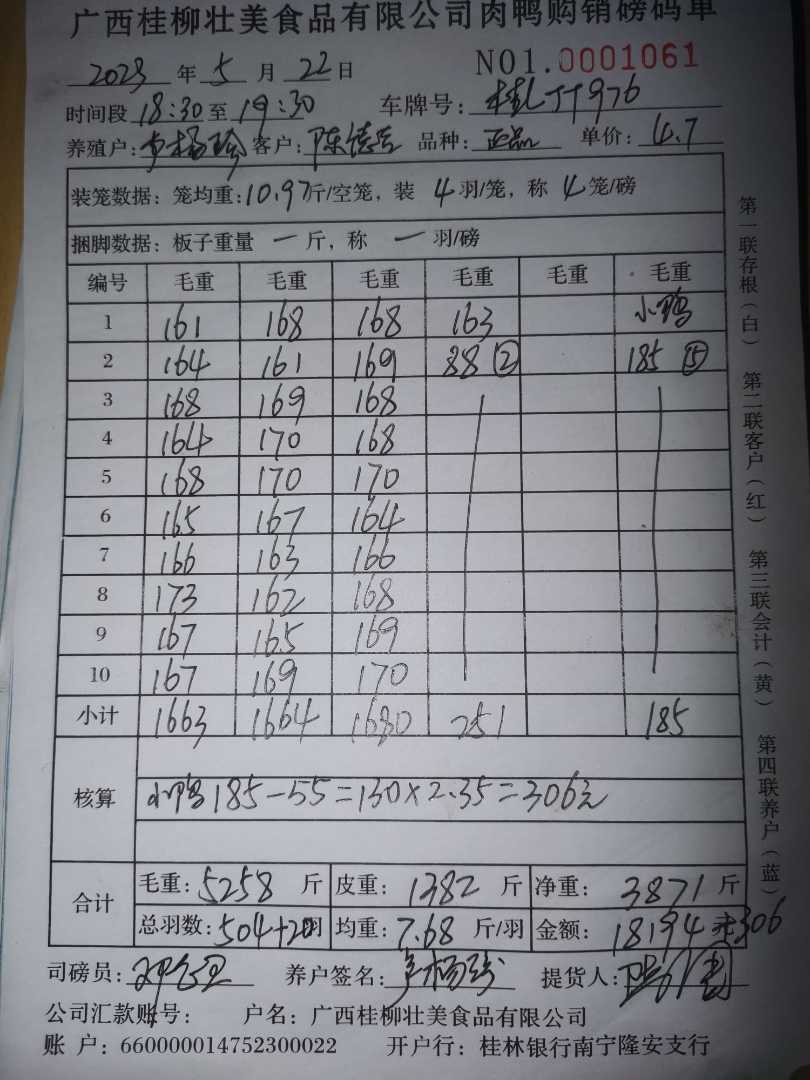 广西桂柳壮美食品有限公司肉鸭购销磅码单
2023 年 5 月 22 日 NO1.0001061
时间段 18:30 至 19:30 车牌号: 桂 976
养殖户: 杨 客户: 陈德 品种: 正品 单价: 4.7
装笼数据: 笼均重: 10.97 斤/空笼, 装 4 羽/笼, 称 4 笼/磅
捆脚数据: 板子重量 一 斤, 称 一 羽/磅
编号 毛重 毛重 毛重 毛重 毛重 毛重
1 161 168 168 163 小鸭
2 164 161 169 88 ② 185 ⑤
3 168 169 168
4 164 170 168
5 168 170 170
6 165 167 164
7 166 163 166
8 173 162 168
9 167 165 169
10 167 169 170
小计 1663 1664 1680 251 185
核算 小鸭185-55=130×2.35=306元
合计 毛重: 5258 斤 皮重: 1382 斤 净重: 3871 斤
总羽数: 504+20羽 均重: 7.68 斤/羽 金额: 18194+306
司磅员: 养户签名: 杨 提货人:
公司汇款账号: 户名: 广西桂柳壮美食品有限公司
账 户: 660000014752300022 开户行: 桂林银行南宁隆安支行
第一联存根(白) 第二联客户(红) 第三联会计(黄) 第四联养户(蓝)